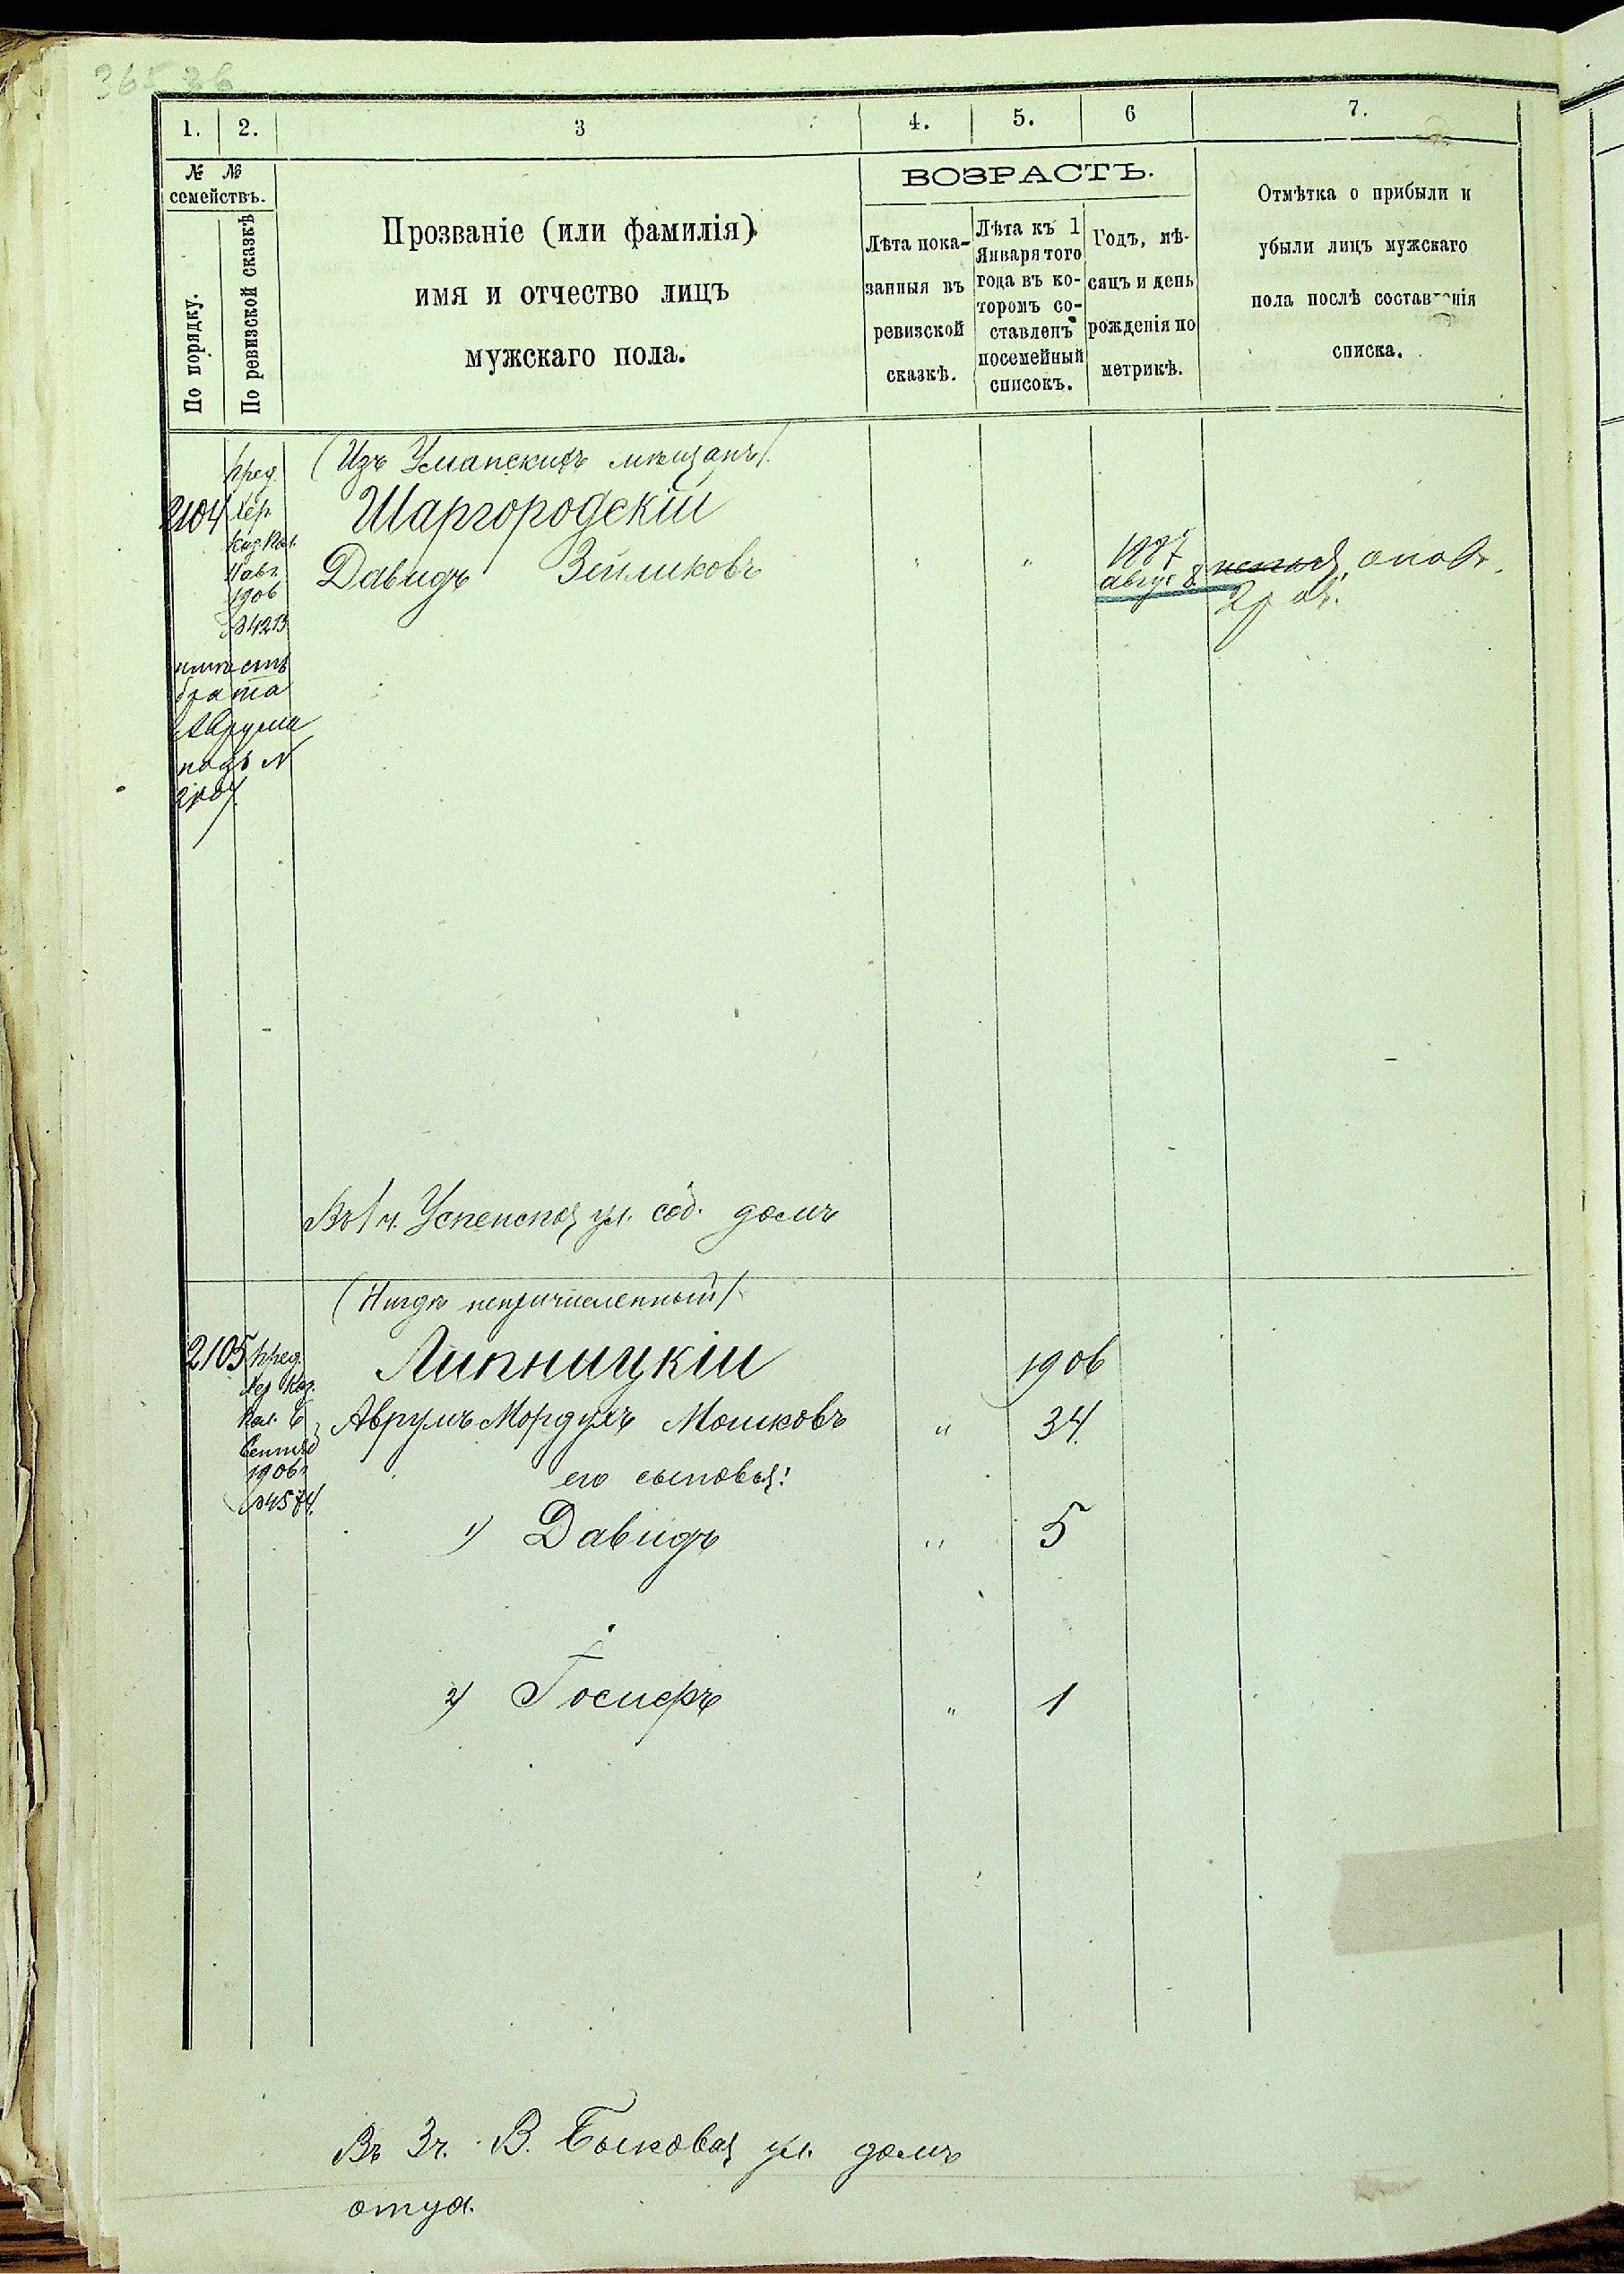 365 36
1. 2. 3 4. 5. 6 7.
№ №
семействъ.
По порядку.
По ревизской сказкѣ
Прозваніе (или фамилія)
имя и отчество лицъ
мужскаго пола.
ВОЗРАСТЪ.
Лѣта пока-
занныя въ
ревизской
сказкѣ.
Лѣта къ 1
Января того
года въ ко-
торомъ со-
ставленъ
посемейный
списокъ.
Годъ, мѣ-
сяцъ и день
рожденія по
метрикѣ.
Отмѣтка о прибыли и
убыли лицъ мужскаго
пола послѣ составленія
списка.
(Изъ Уманскихъ мѣщанъ)
2104
пред.
Хер.
Каз. Пал.
11 авг.
1906
№ 4213
Шаргородскій
Давидъ Зейликовъ
" "
1887
авгус 8.
брата
Аврума
подъ №
Въ 1 ч. Успенская ул. соб. домъ
(Нигдѣ непричисленный)
2105
пред.
Хер Каз.
Пал. 6
Сентяб
1906
№ 4574
Липницкій
1906
Аврумъ Мордухъ Мошковъ " 34.
его сыновья:
1) Давидъ " 5
2) Іосифъ " 1
Въ 3 ч. В. Быковая ул. домъ
отца.